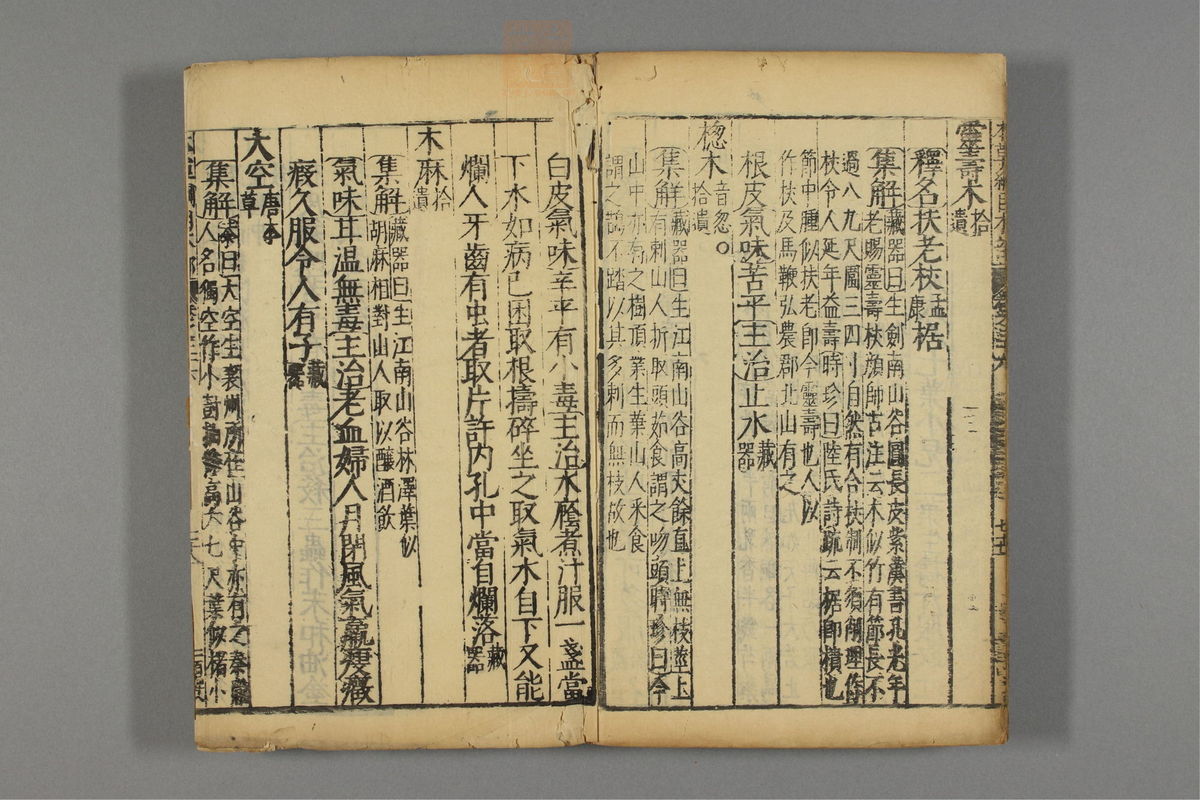 靈壽木拾遺
釋名扶老杖孟康椐
集解藏器曰生劍南山谷圓長皮紫漢書孔光年
老賜靈壽杖顔師古注云木似竹有節長不
過八九尺圍三四寸自然有合杖制不須削理作
杖令人延年益壽時珍曰陸氏詩疏云椐即樻也
節中腫似扶老即今靈壽也人以
作杖及馬鞭弘農郡北山有之
根皮氣味苦平主治止水藏器
楤木拾遺音忽〇
集解藏器曰生江南山谷高丈餘直上無枝莖上
有刺山人折取頭茹食謂之吻頭時珍曰今
山中亦有之樹頂叢生葉山人采食
謂之鵲不踏以其多刺而無枝故也
白皮氣味辛平有小毒主治水癊煮汁服一盞當
下水如病已困取根擣碎坐之取氣水自下又能
爛人牙齒有虫者取片許內孔中當自爛落藏器
木麻拾遺
集解藏器曰生江南山谷林澤葉似
胡麻相對山人取以釀酒飲
氣味甘温無毒主治老血婦人月閉風氣羸瘦癥
瘕久服令人有子藏器
大空唐本草
集解恭曰大空生襄州所在山谷中亦有之秦隴
人名獨空作小樹抽條高六七尺葉似楮小